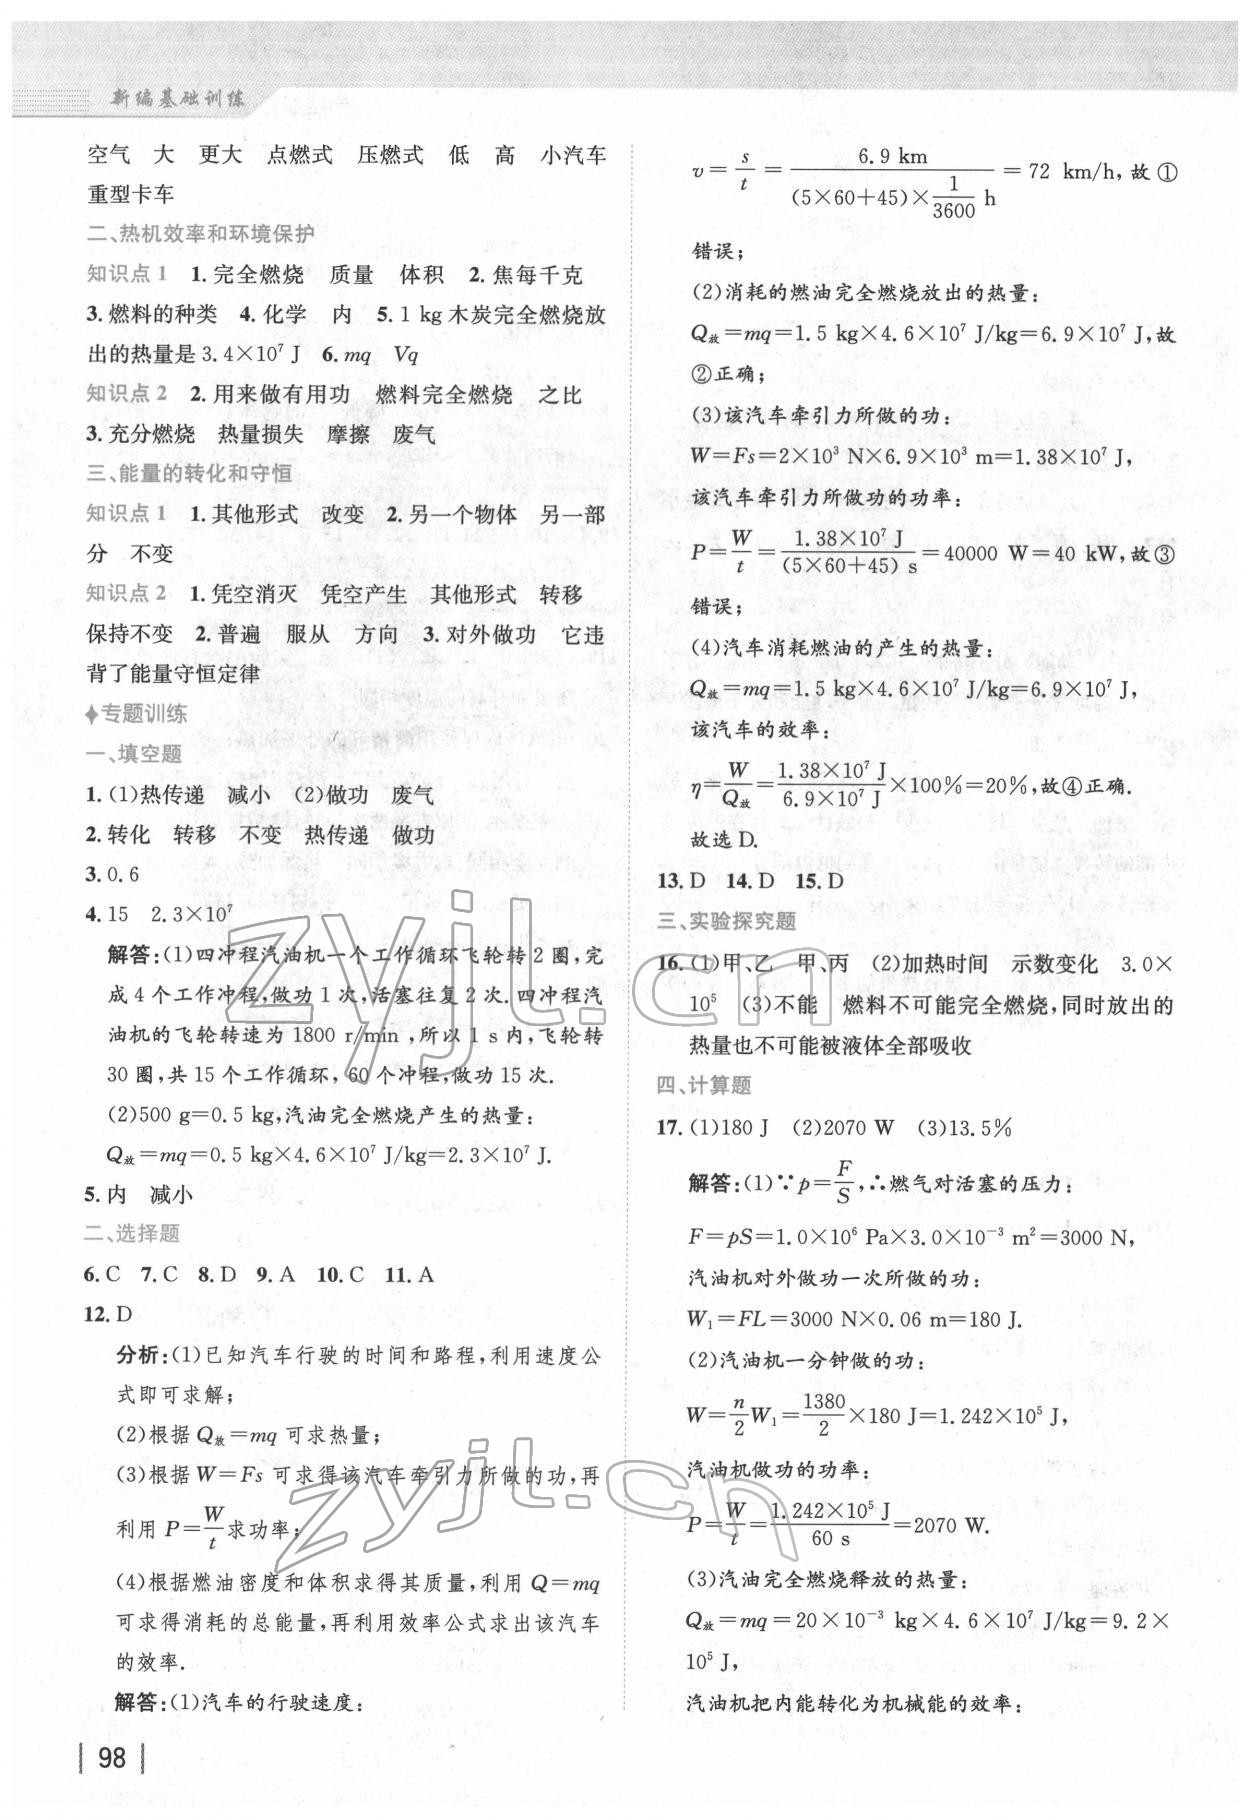 新编基础训练
空气　大　更大　点燃式　压燃式　低　高　小汽车
重型卡车
二、热机效率和环境保护
知识点 1　1. 完全燃烧　质量　体积　2. 焦每千克
3. 燃料的种类　4. 化学　内　5. 1 kg 木炭完全燃烧放
出的热量是 3.4×10⁷ J　6. mq　Vq
知识点 2　2. 用来做有用功　燃料完全燃烧　之比
3. 充分燃烧　热量损失　摩擦　废气
三、能量的转化和守恒
知识点 1　1. 其他形式　改变　2. 另一个物体　另一部
分　不变
知识点 2　1. 凭空消灭　凭空产生　其他形式　转移
保持不变　2. 普遍　服从　方向　3. 对外做功　它违
背了能量守恒定律
专题训练
一、填空题
1. (1)热传递　减小　(2)做功　废气
2. 转化　转移　不变　热传递　做功
3. 0.6
4. 15　2.3×10⁷
解答:(1)四冲程汽油机一个工作循环飞轮转 2 圈,完
成 4 个工作冲程,做功 1 次,活塞往复 2 次. 四冲程汽
油机的飞轮转速为 1800 r/min ,所以 1 s 内,飞轮转
30 圈,共 15 个工作循环, 60 个冲程,做功 15 次.
(2)500 g=0.5 kg,汽油完全燃烧产生的热量:
Q放=mq=0.5 kg×4.6×10⁷ J/kg=2.3×10⁷ J.
5. 内　减小
二、选择题
6. C　7. C　8. D　9. A　10. C　11. A
12. D
分析:(1)已知汽车行驶的时间和路程,利用速度公
式即可求解;
(2)根据 Q放=mq 可求热量;
(3)根据 W=Fs 可求得该汽车牵引力所做的功,再
利用 P=W/t 求功率;
(4)根据燃油密度和体积求得其质量,利用 Q=mq
可求得消耗的总能量,再利用效率公式求出该汽车
的效率.
解答:(1)汽车的行驶速度:
98
v=s/t=6.9 km/((5×60+45)×1/3600 h)=72 km/h,故①
错误;
(2)消耗的燃油完全燃烧放出的热量:
Q放=mq=1.5 kg×4.6×10⁷ J/kg=6.9×10⁷ J,故
②正确;
(3)该汽车牵引力所做的功:
W=Fs=2×10³ N×6.9×10³ m=1.38×10⁷ J,
该汽车牵引力所做功的功率:
P=W/t=1.38×10⁷ J/((5×60+45) s)=40000 W=40 kW,故③
错误;
(4)汽车消耗燃油的产生的热量:
Q放=mq=1.5 kg×4.6×10⁷ J/kg=6.9×10⁷ J,
该汽车的效率:
η=W/Q放=1.38×10⁷ J/6.9×10⁷ J×100%=20%,故④正确.
故选 D.
13. D　14. D　15. D
三、实验探究题
16. (1)甲、乙　甲、丙　(2)加热时间　示数变化　3.0×
10⁵　(3)不能　燃料不可能完全燃烧,同时放出的
热量也不可能被液体全部吸收
四、计算题
17. (1)180 J　(2)2070 W　(3)13.5%
解答:(1)∵p=F/S,∴燃气对活塞的压力:
F=pS=1.0×10⁶ Pa×3.0×10⁻³ m²=3000 N,
汽油机对外做功一次所做的功:
W₁=FL=3000 N×0.06 m=180 J.
(2)汽油机一分钟做的功:
W=n/2 W₁=1380/2×180 J=1.242×10⁵ J,
汽油机做功的功率:
P=W/t=1.242×10⁵ J/60 s=2070 W.
(3)汽油完全燃烧释放的热量:
Q放=mq=20×10⁻³ kg×4.6×10⁷ J/kg=9.2×
10⁵ J,
汽油机把内能转化为机械能的效率:
zyjl.cn
zyjl.cn